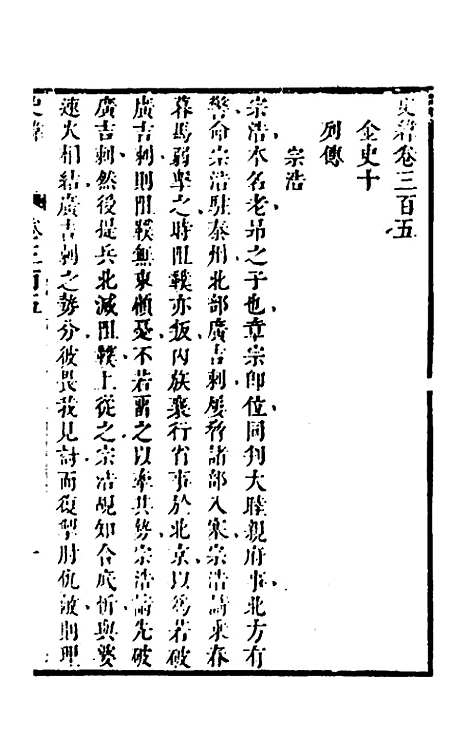 史緯卷三百五
金史十
列傳
宗浩
宗浩本名老昂之子也章宗卽位同判大睦親府事北方有
警命宗浩駐泰州北部廣吉剌屢脅諸部入寇宗浩請乘春
暮馬弱擊之時阻䪁亦叛內族襄行省事於北京以爲若破
廣吉剌則阻䪁無東顧憂不若留之以牽其勢宗浩請先破
廣吉剌然後提兵北滅阻䪁上從之宗浩覘知合底忻與婆
速火相結廣吉剌之勢分彼畏我見討而復掣肘仇敵則理
史緯 卷三百五 一